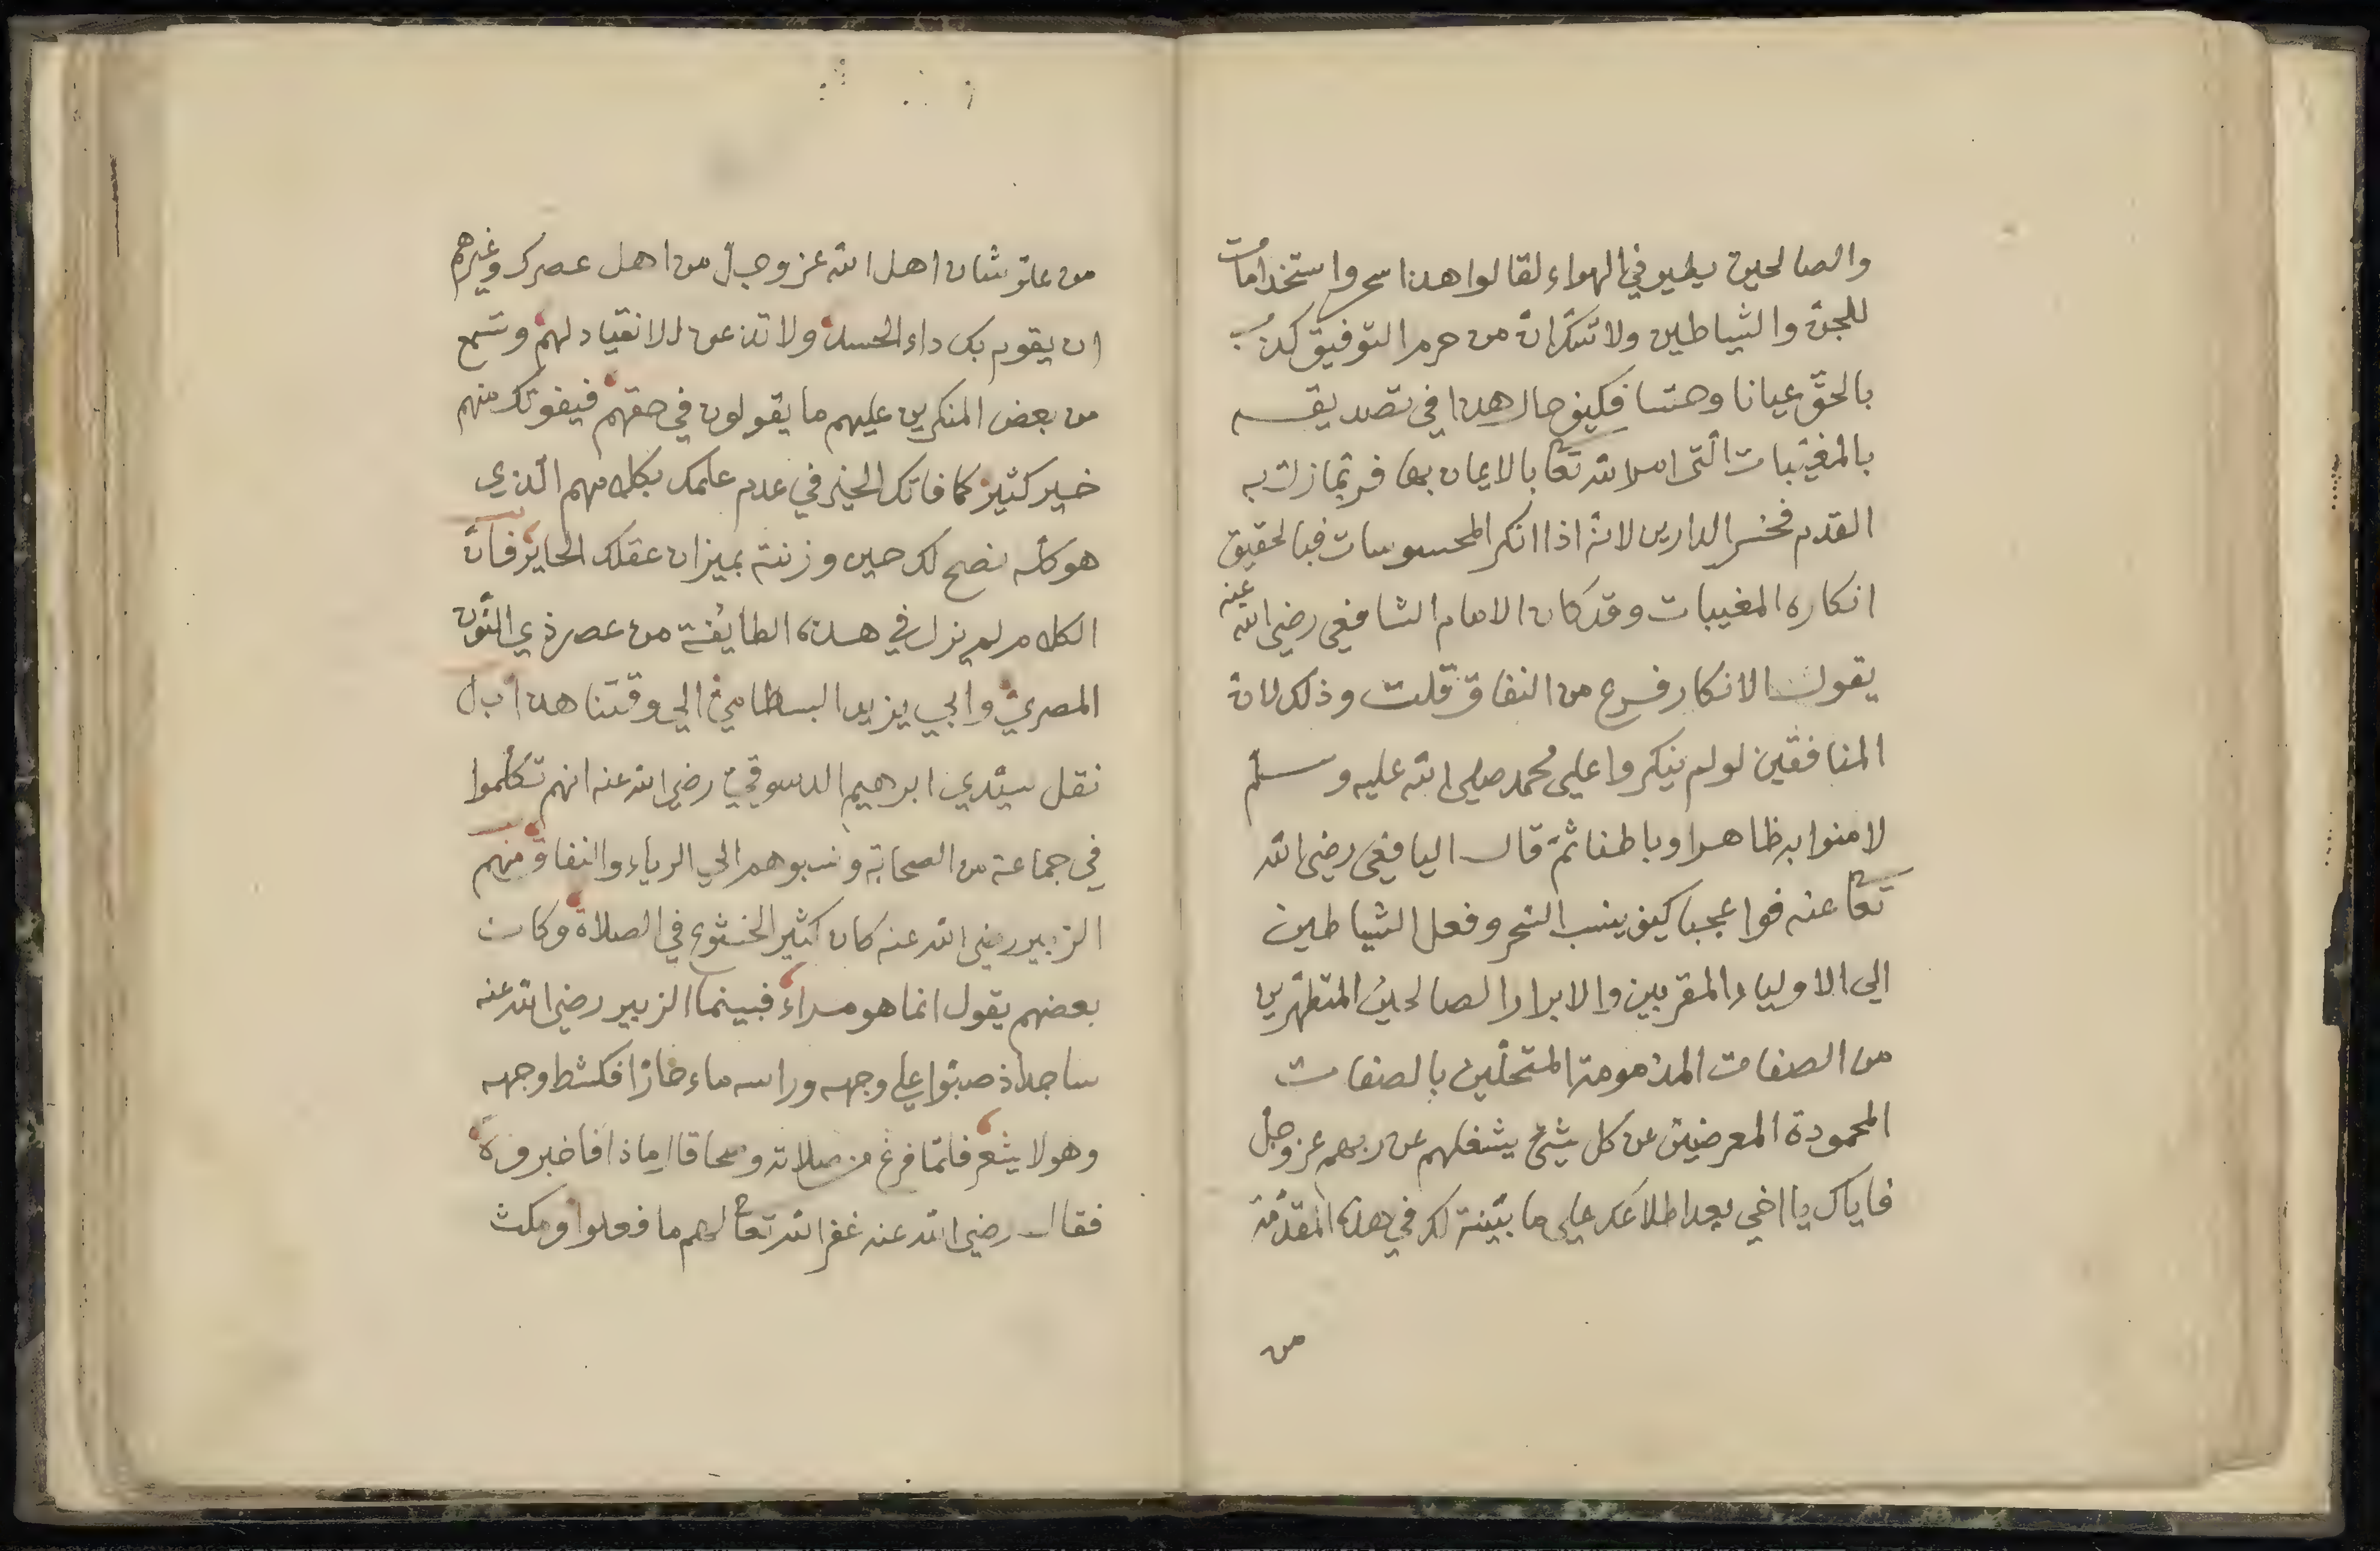 والصالحين يطير في الهواء لقالوا هذا سحر واستخدامات
للجن والشياطين ولا شك ان من حرم التوفيق كذب
بالحق عيانا وحسا فكيف حال هذا في تصديقه
بالمغيبات التي امر الله تعا بالايمان بها فربما زلت به
القدم فخسر الدارين لانه اذا انكر المحسوسات فبالحقيق
انكاره المغيبات وقد كان الامام الشافعي رضي الله عنه
يقول الانكار فرع من النفاق قلت وذلك لان
المنافقين لو لم ينكروا على محمد صلى الله عليه وسلم
لامنوا به ظاهرا وباطنا ثم قال اليافعي رضي الله
تعا عنه فواعجبا كيف ينسب السحر وفعل الشياطين
الى الاولياء المقربين والابرار الصالحين المتطهرين
من الصفات المذمومة المتحلين بالصفات
المحمودة المعرضين عن كل شئ يشغلهم عن ربهم عز وجل
فاياك يا اخي بعد اطلاعك على ما بينته لك في هذه المقدمة
من
من علو شان اهل الله عز وجل من اهل عصرك وغيرهم
ان يقوم بك داء الحسد ولا تذعن للانقياد لهم وتسمع
من بعض المنكرين عليهم ما يقولون في حقهم فيفوتك منهم
خير كثير كما فاتك الخير في عدم علمك بكلامهم الذي
هو كله نصح لك حين وزنته بميزان عقلك الجاير فان
الكلام لم يزل في هذه الطايفة من عصر ذي النون
المصري وابي يزيد البسطامي الي وقتنا هذا بل
نقل سيدي ابرهيم الدسوقي رضي الله عنه انهم تكلموا
في جماعة من الصحابة ونسبوهم الي الرياء والنفاق منهم
الزبير رضي الله عنه كان كثير الخشوع في الصلاة وكان
بعضهم يقول انما هو مراء فبينما الزبير رضي الله عنه
ساجد اذ صبوا علي وجهه وراسه ماء حارا فكشط وجهه
وهو لا يشعر فلما فرغ من صلاته وصحا قال ماذا فاخبروه
فقال رضي الله عنه غفر الله تعا لهم ما فعلوا ومكث